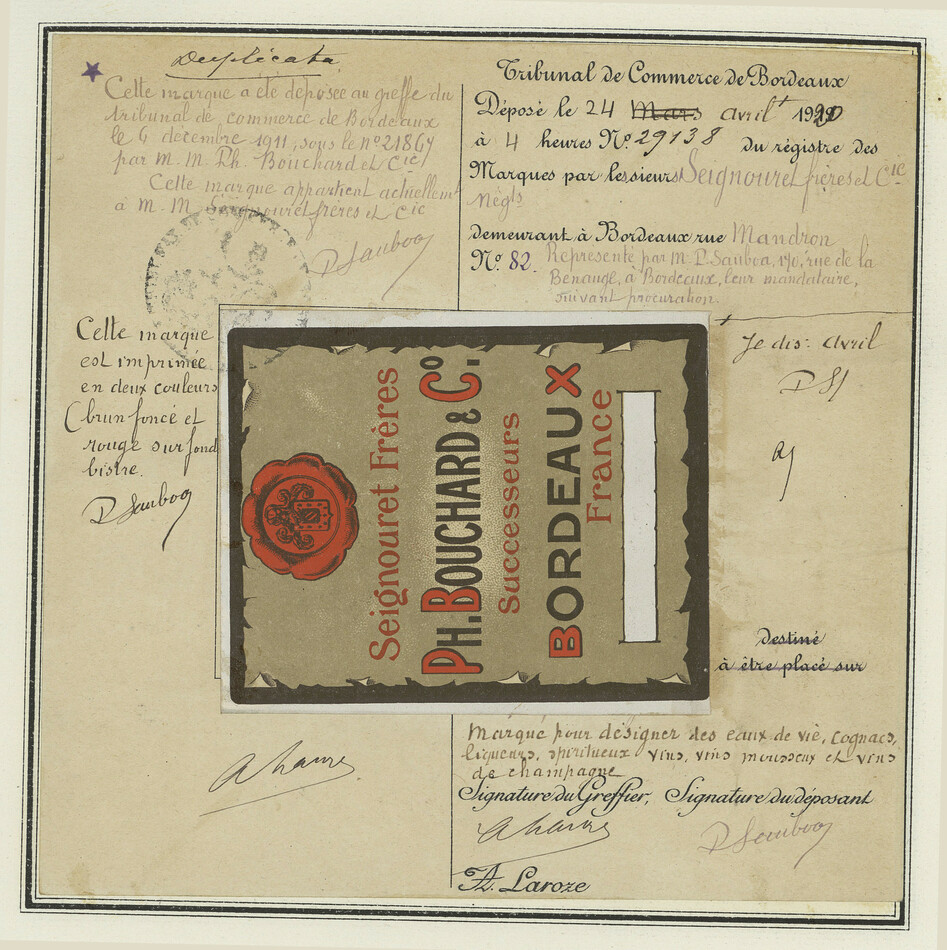 Duplicata
Cette marque a été déposée au greffe du
tribunal de commerce de Bordeaux
le 6 décembre 1911, sous le no 21867
par M.M. Ph. Bouchard et Cie
Cette marque appartient actuellement
à M.M. Seignouret frères et Cie
P Sauboa
Tribunal de Commerce de Bordeaux
Déposé le 24 Mars avril 1920
à 4 heures No. 29138 du régistre des
Marques par les sieurs Seignouret frères et Cie
Négts
demeurant à Bordeaux rue Mandron
No. 82. Représenté par M. P. Sauboa, 170, rue de la
Benauge, à Bordeaux, leur mandataire,
suivant procuration.
Cette marque
est imprimée
en deux couleurs
(brun foncé et
rouge sur fond
bistre.
P Sauboa
Seignouret Frères
PH. BOUCHARD & Co.
Successeurs
BORDEAUX
France
Je dis: avril
PS
destiné
à être placé sur
Marque pour désigner des eaux de vie, cognacs,
liqueurs, spiritueux vins, vins mousseux et vins
de champagne
Signature du Greffier, Signature du déposant
P Sauboa
A. Laroze